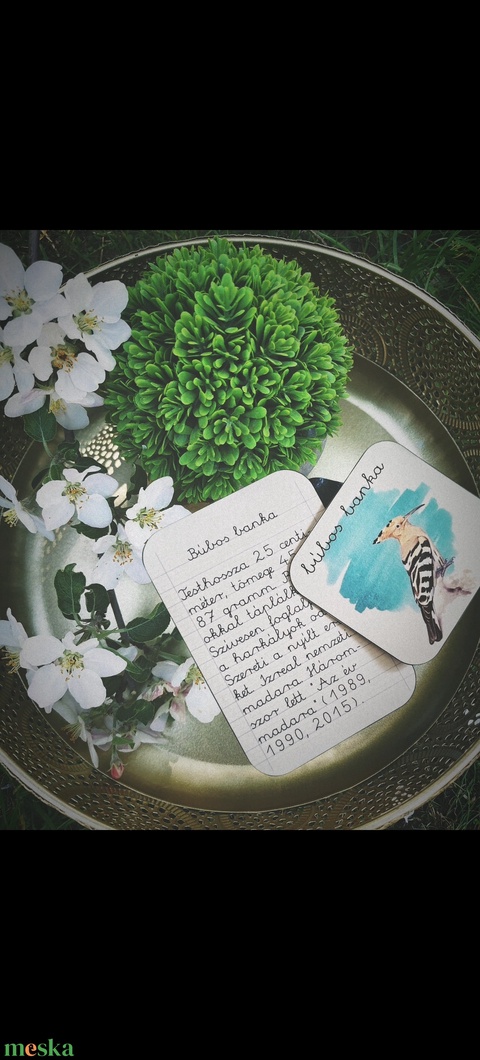 Búbos banka
Testhossza 25 centi-
méter, tömege 45
87 gramm.
okkal táplálk
Szívesen foglalj
a harkályok od
Szereti a nyílt er
ket. Izrael nemzeti
madara. Három-
szor lett "Az év
madara" (1989,
1990, 2015).
búbos banka
meska